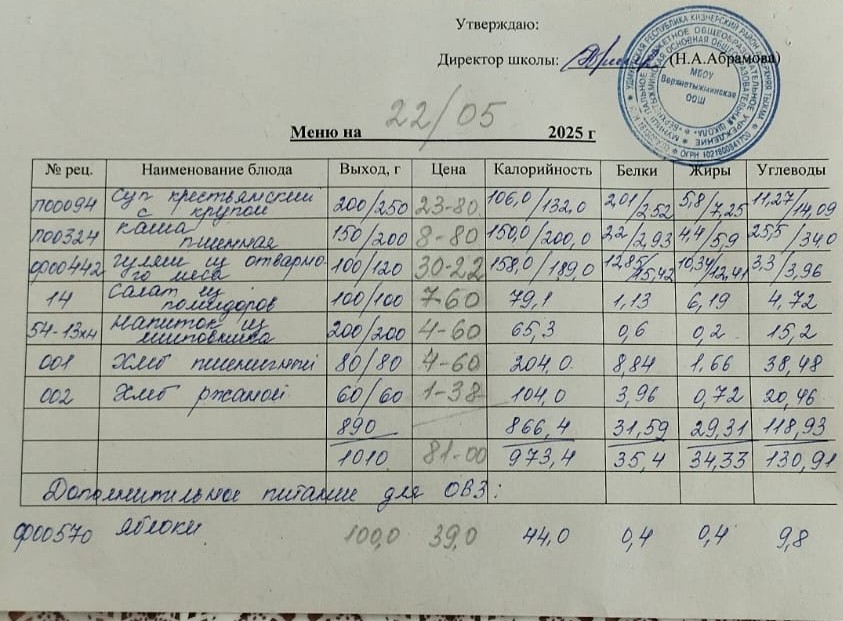 Утверждаю:
Директор школы: (Н.А.Абрамова)
МБОУ
Верхнетыжминская
ООШ
Меню на 22/05 2025 г
№ рец. Наименование блюда Выход, г Цена Калорийность Белки Жиры Углеводы
п00094 Суп крестьянский с крупой 200/250 23-80 106,0/132,0 2,01/2,52 5,8/7,25 11,27/14,09
п00324 Каша пшенная 150/200 8-80 150,0/200,0 2,2/2,93 4,4/5,9 25,5/34,0
ф00442 Гуляш из отварного мяса 100/120 30-22 158,0/189,0 12,85/15,42 10,34/12,41 3,3/3,96
14 Салат из помидоров 100/100 7-60 79,1 1,13 6,19 4,72
54-13хн Напиток из шиповника 200/200 4-60 65,3 0,6 0,2 15,2
001 Хлеб пшеничный 80/80 4-60 204,0 8,84 1,66 38,48
002 Хлеб ржаной 60/60 1-38 104,0 3,96 0,72 20,46
890 866,4 31,59 29,31 118,93
1010 81-00 973,4 35,4 34,33 130,91
Дополнительное питание для ОВЗ:
ф00570 Яблоки 100,0 39,0 44,0 0,4 0,4 9,8